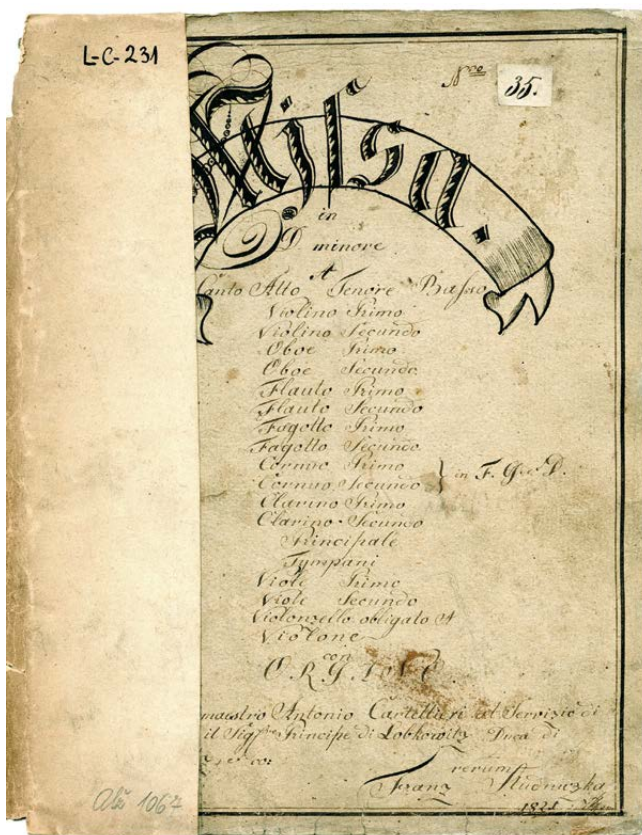 L-C-231
Nro 35.
Missa.
in
D. minore
A
Canto Alto Tenore Basso
Violino Primo
Violino Secundo
Oboe Primo
Oboe Secundo
Flauto Primo
Flauto Secundo
Fagotto Primo
Fagotto Secundo
Cornuo Primo
Cornuo Secundo } in F. G et D.
Clarino Primo
Clarino Secundo
Principale
Tympani
Viole Primo
Viole Secundo
Violonzello obligato A
Violone
con
maestro Antonio Cartellieri al Servizio di
il Principe di Lobkowitz Duca di
rerum
Franz
1821
1067